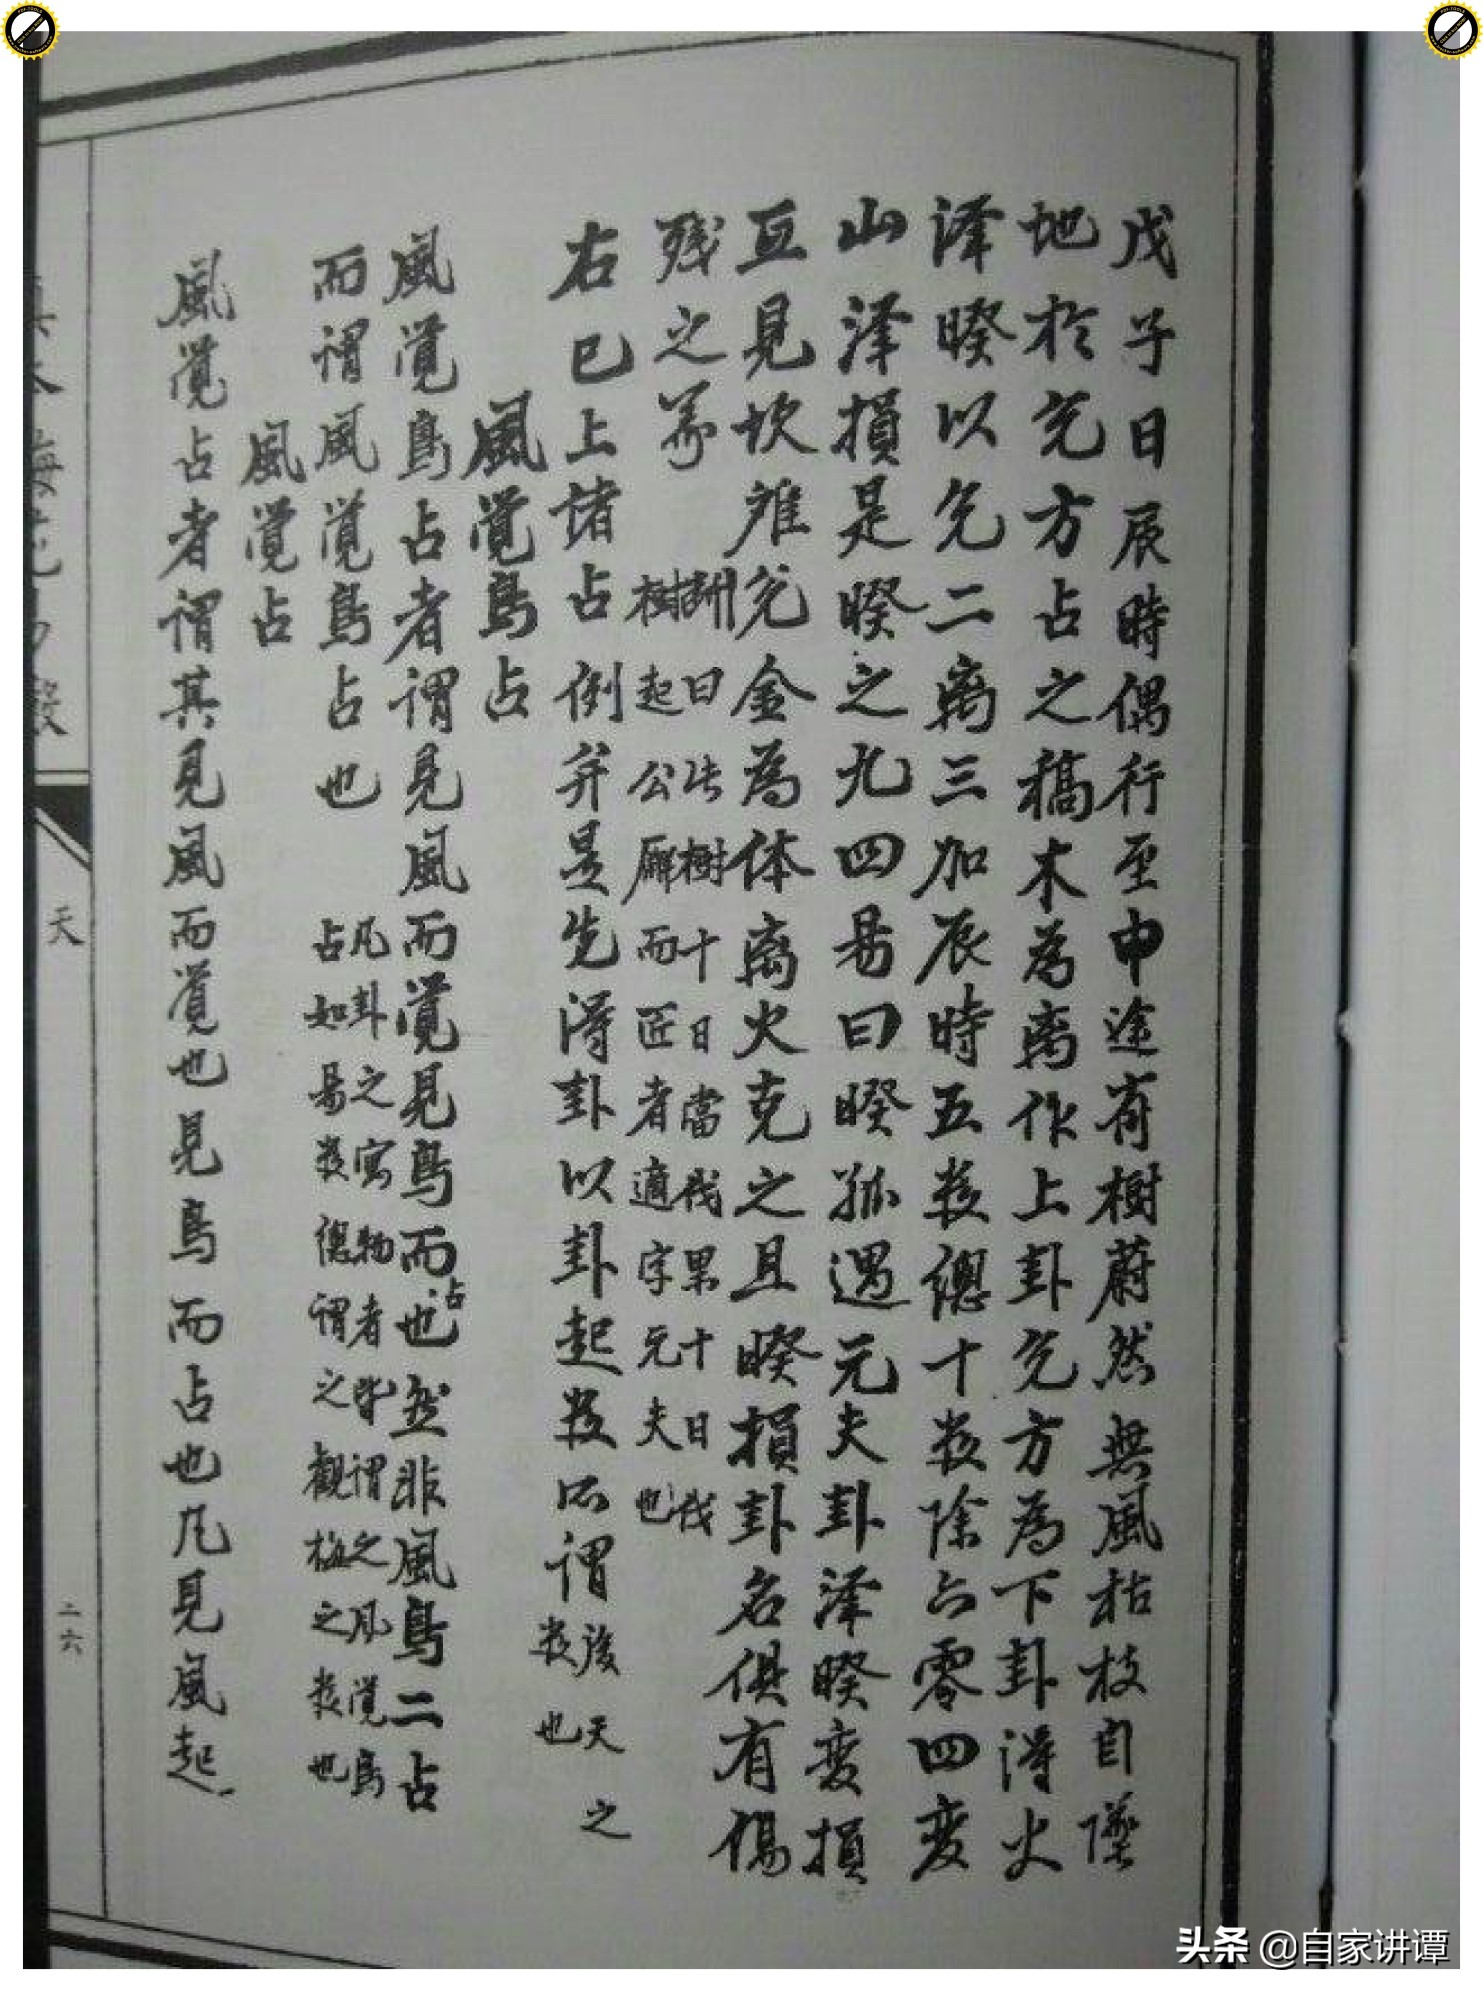 戊子日辰時偶行至中途有樹蔚然無風枯枝自墜
地於兌方占之槁木為离作上卦兌方為下卦得火
泽睽以兌二离三加辰時五数總十数除六零四变
山泽損是睽之九四易曰睽孤遇元夫卦泽睽变損
互見坎离兌金為体离火克之且睽損卦名俱有傷
残之义
断曰此樹十日當伐果十日伐
樹起公廨而匠者適字元夫也
右已上諸占例并是先得卦以卦起数所谓
後天之
数也
風覺鳥占
風覺鳥占者谓見風而覺見鳥而占也然非風鳥二占
而谓風覺鳥占也
凡卦之寓物者皆谓之風覺鳥
占如易数總谓之觀梅之数也
風覺占
風覺占者谓其見風而覺也見鳥而占也凡見風起
天
二六
头条 @自家讲谭